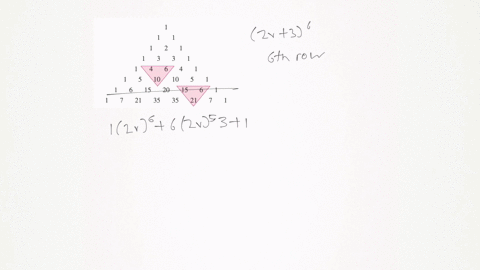 1
1 1
1 2 1
1 3 3 1
1 4 6 4 1
1 5 10 10 5 1
1 6 15 20 15 6 1
1 7 21 35 35 21 7 1
(2x+3)^6
6th row
1(2x)^6+6(2x)^5 3+1